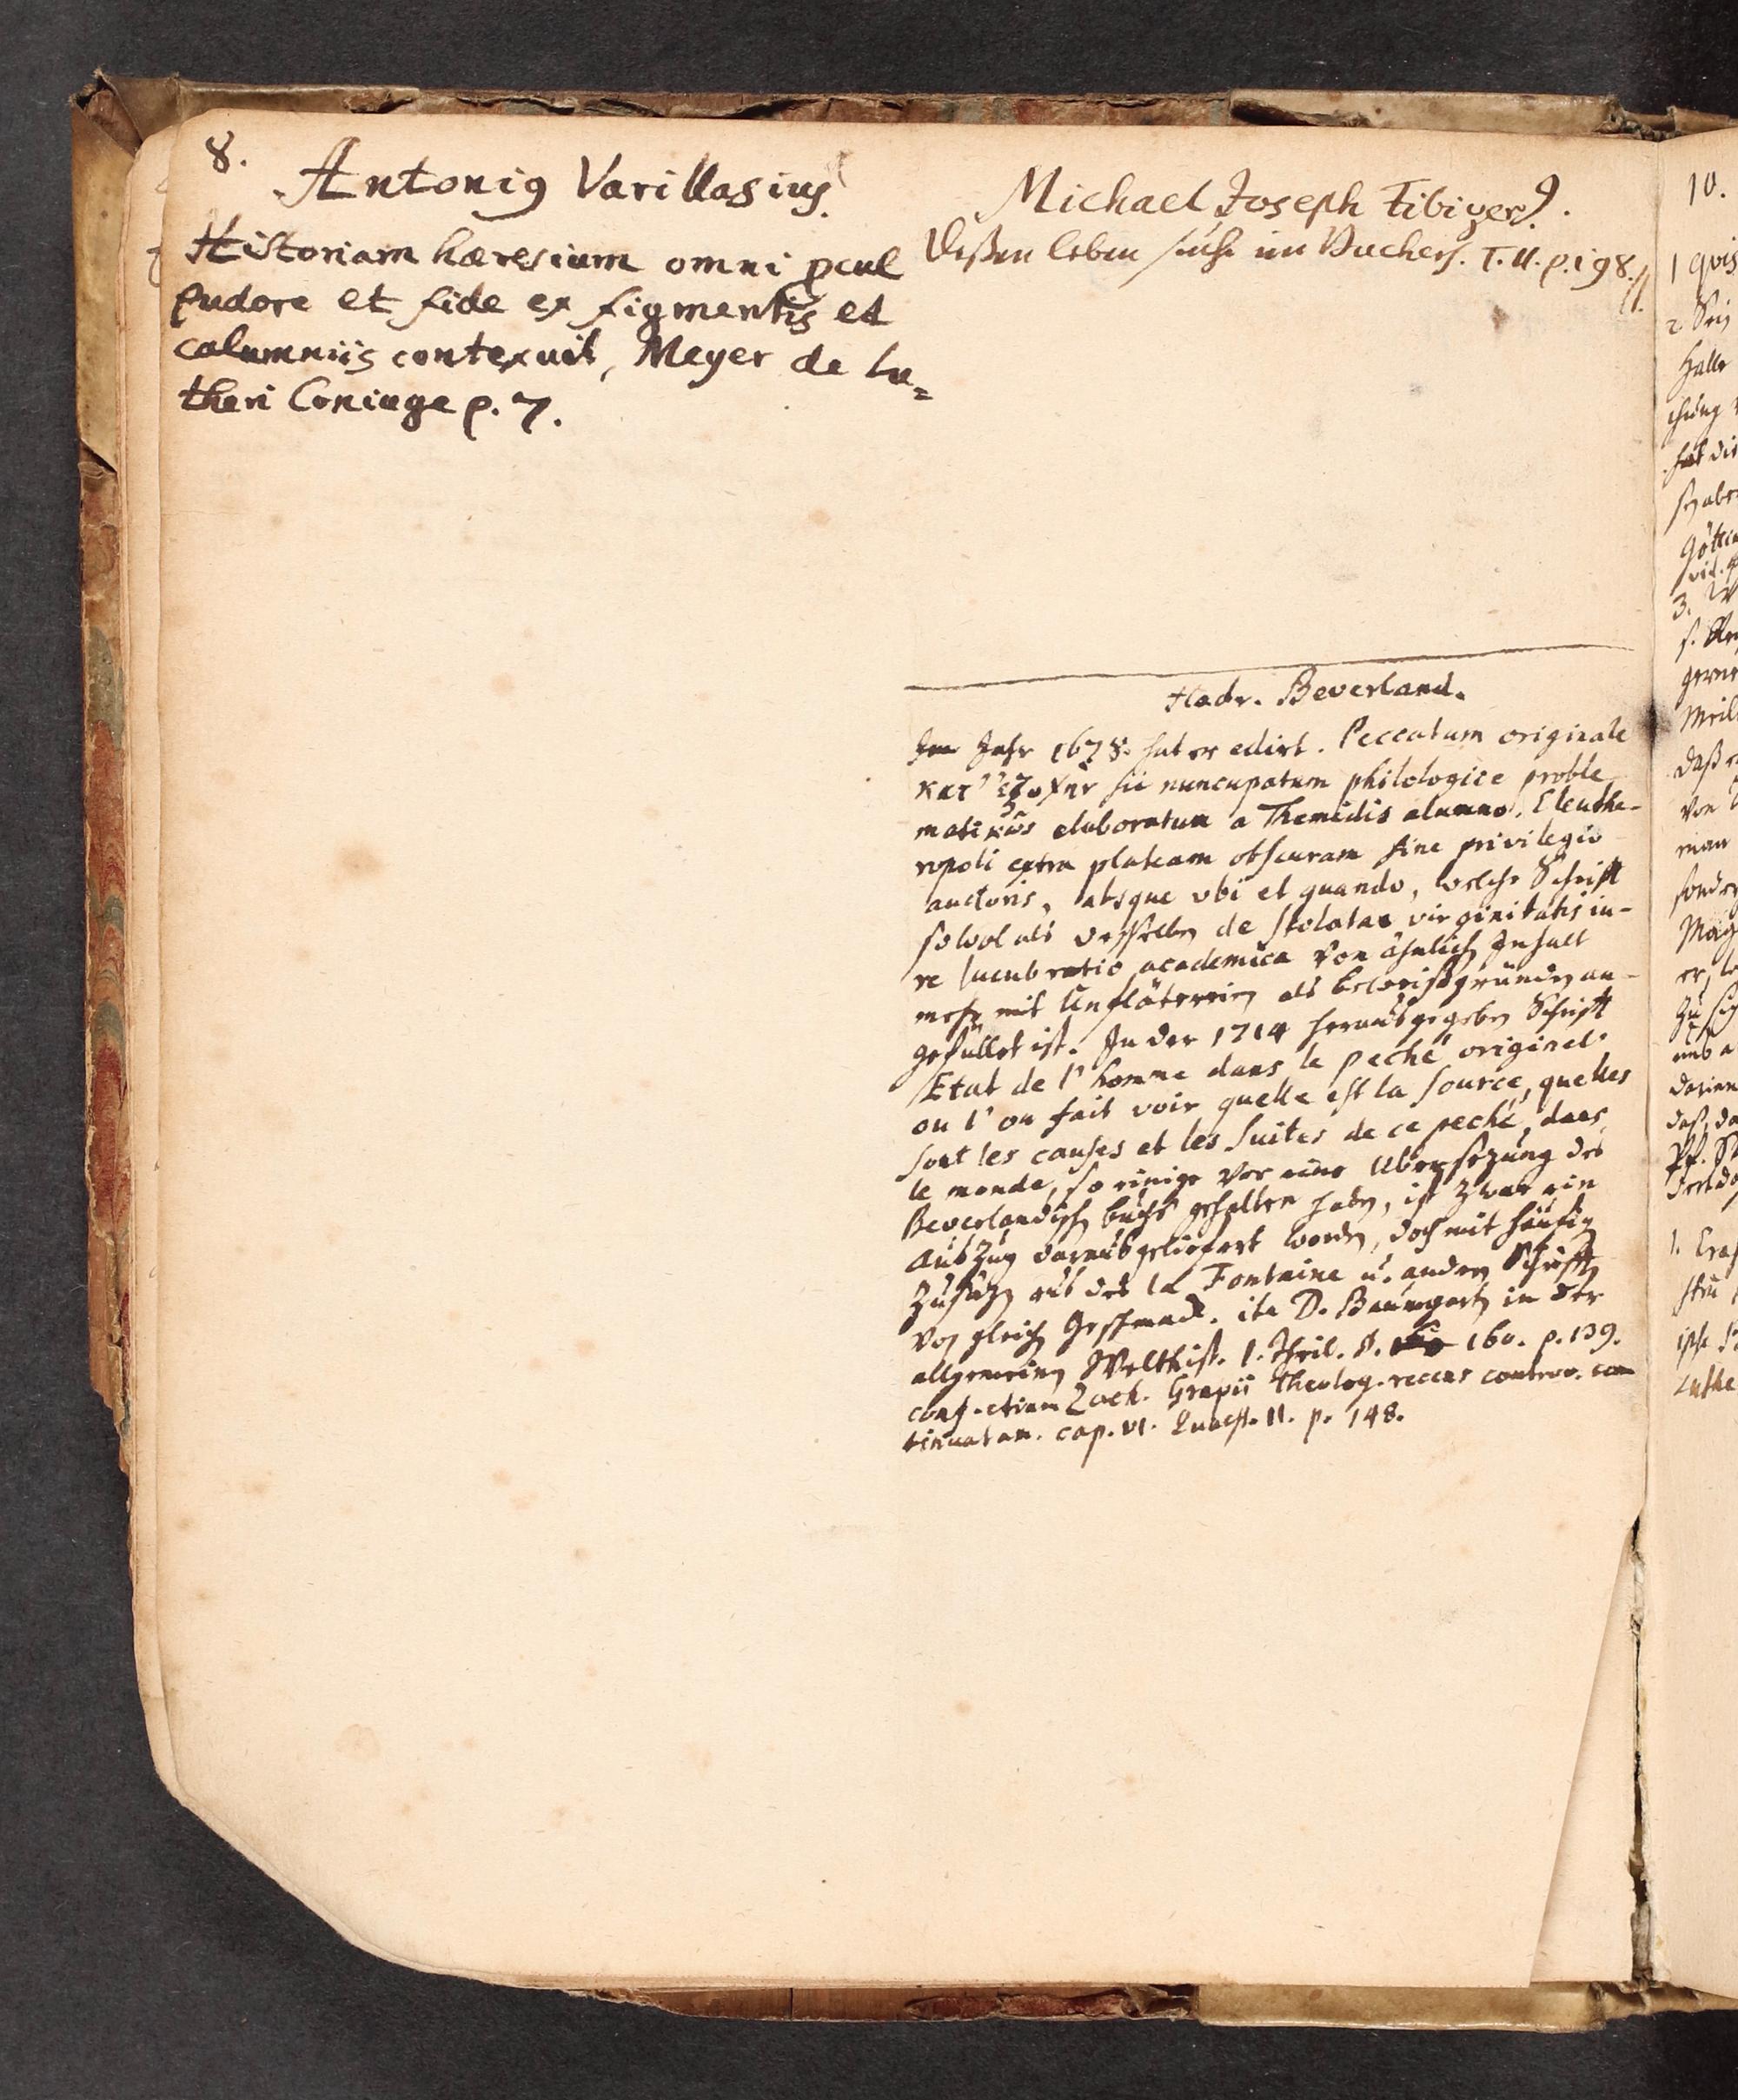 8.
Antonig Varillasius.
Historiam hæresium omni pcul
pudore et fide ex figmentis et
calumniis contexuit, Meyer de Lu=
theri Coniuge p. 7.
Michael Joseph Fibiger.
Deßen leben siehe im Buchers. T. II. p. 198.
Hadr. Beverland.
Im Jahr 1678. hat er edirt. Peccatum originale
κατ' ἐξοχην sic nuncupatum philologice proble
matικως elaboratum a Themidis alumno. Eleuthe-
ropoli extra plateam obscuram sine privilegio
auctoris, absque vbi et quando, welche Schrift
sowol als desselben de stolatae virginitatis iu-
re lucubratio academica von ähnlich Inhalt
mehr mit Unfläterein als beweißgründen an-
gefüllet ist. In der 1714 herausgegeben Schrift
Etat de l'homme dans le peché originel.
ou l'on fait voir quelle est la source, quelles
sont les causes et les suites de ce peché, dans
le monde, so einige vor eine Ubersezung des
Beverlandisch buchs gehalten haben, ist zwar ein
Auszug daraus geliefert worden, doch mit häufig
Zusäzen aus des la Fontaine u. andern Schrifften
von gleich Geschmack. ita D. Baumgarten in der
allgemeinen Welthist. 1. Theil. §. 160. p. 139.
conf. etiam Zach. Grapii theolog. recens controv. con
tinuatam. cap. VI. Quaest. II. p. 148.
10.
1 qvis
2 Sein
Halle
chung
hat die
Götti
vid.
3.
gerne
Meil
daß
von
man
sonder
Mag
er,
zu
und
darinn
daß, da
1. Eras
ipse
Luthe